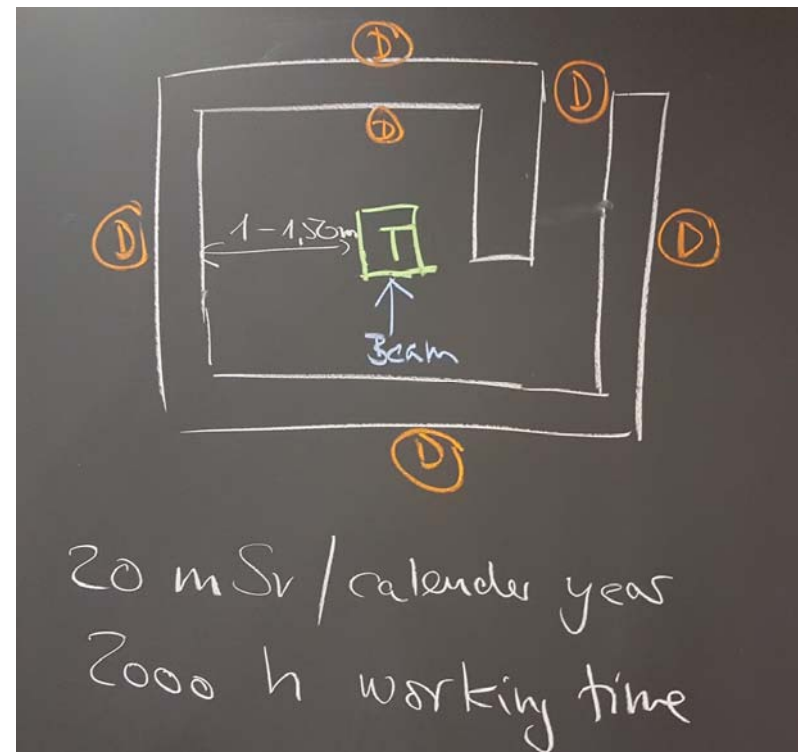 D
D
D
1-1,50m
T
D
D
Beam
D
20 mSv/calender year
2000 h working time